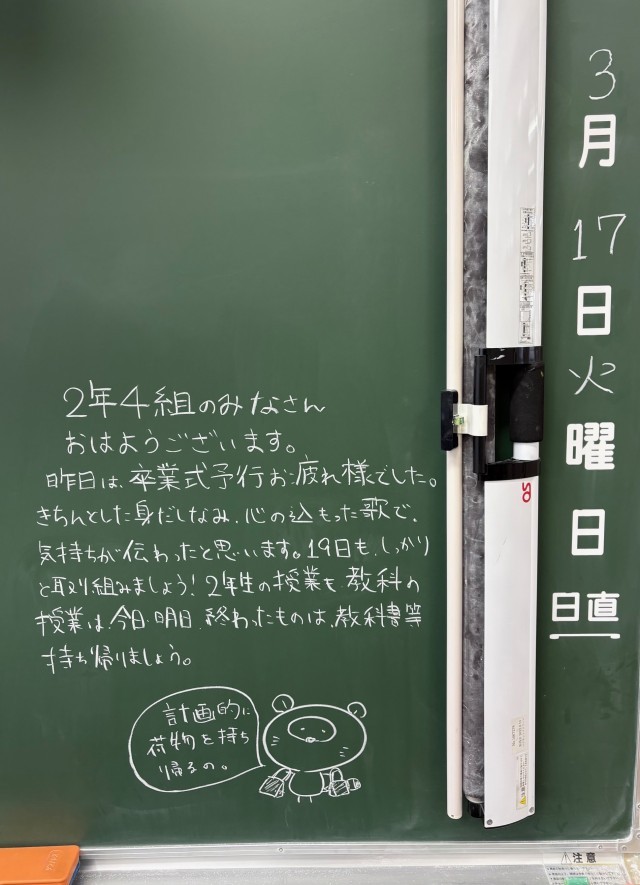 3月17日火曜日
日直
2年4組のみなさん
おはようございます。
昨日は、卒業式予行お疲れ様でした。
きちんとした身だしなみ、心の込もった歌で、
気持ちが伝わったと思います。19日も、しっかり
と取り組みましょう！2年生の授業も教科の
授業は、今日、明日、終わったものは、教科書等
持ち帰りましょう。
計画的に
荷物を持ち
帰るの。
注意